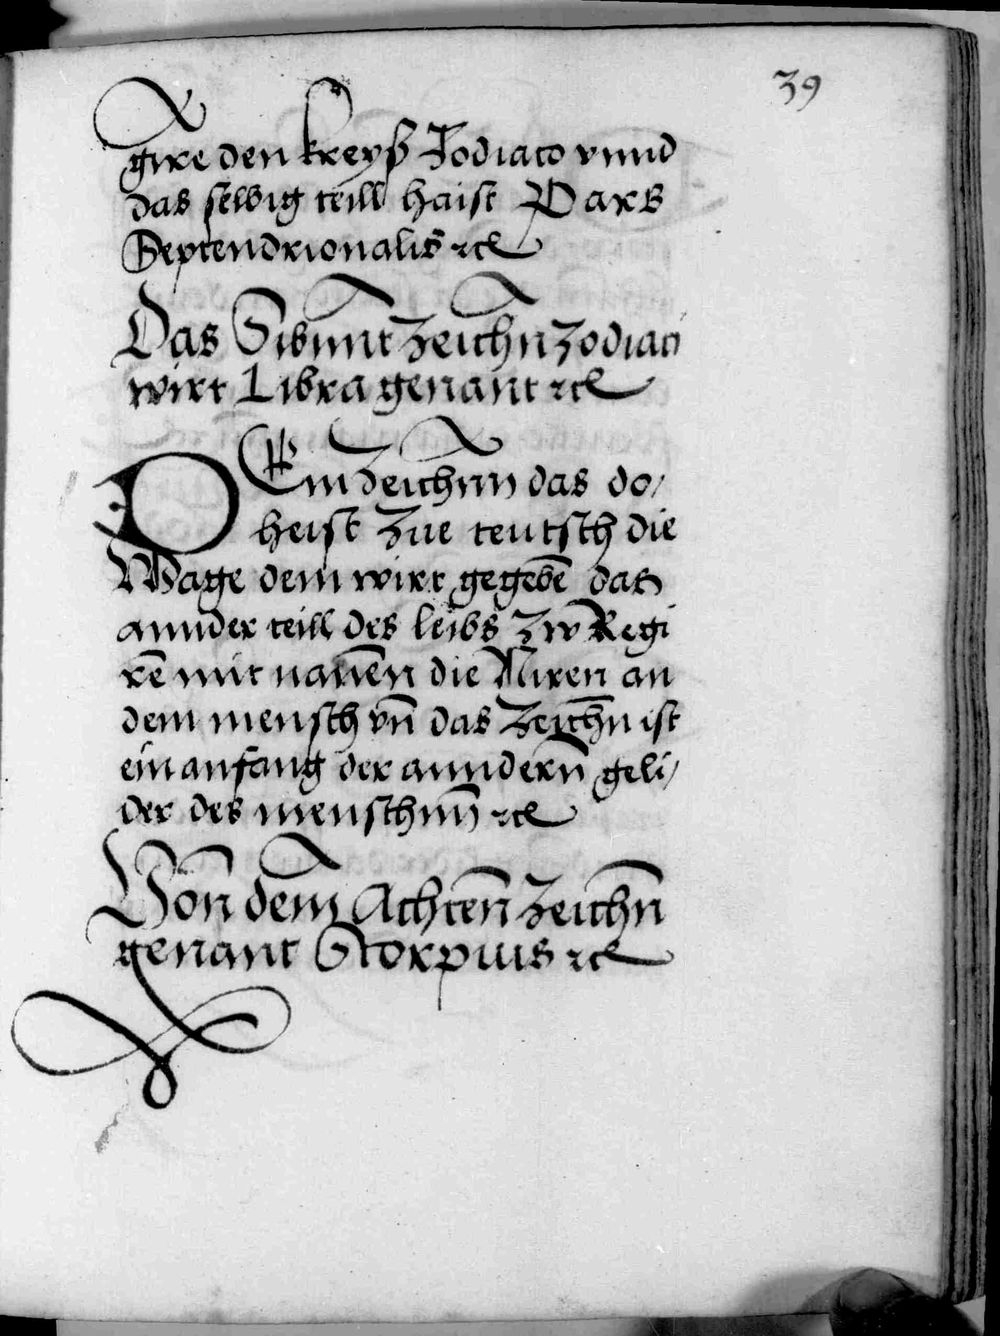 39
gire den kreyß Zodiaco vnnd
das selbig teill haist Pars
Septendrionalis ꝛc
Das Sibnnt zeichn zodiaci
wirt Libra genant ꝛc
Dem Zeichnn das do/
heist Zue teutsch die
Wage dem wirt gegebē das
annder teill des leibs zw Regi
rē mit namen die Niren an
dem mensch vn̄ das zeichn̄ ist
ein anfang der anndern̄ geli/
der des menschnn̄ ꝛc
Von dem Achten̄ zeichn̄
genant Scorpius ꝛc